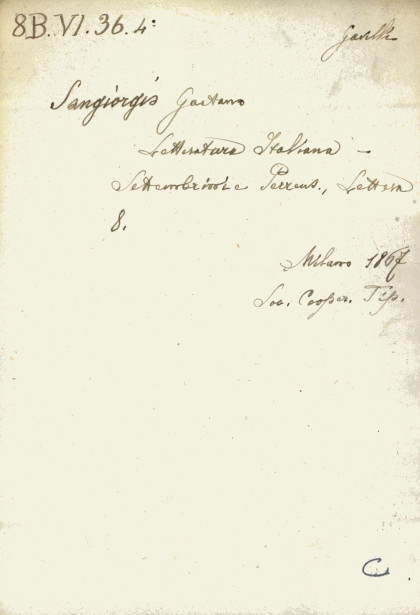 8B.VI.36.4:
Sangiorgis Gaetano
Letteratura Italiana –
Settembrini e Perrens., Lettera
8.
Milano 1867
Soc. Cooper. Tip.
C